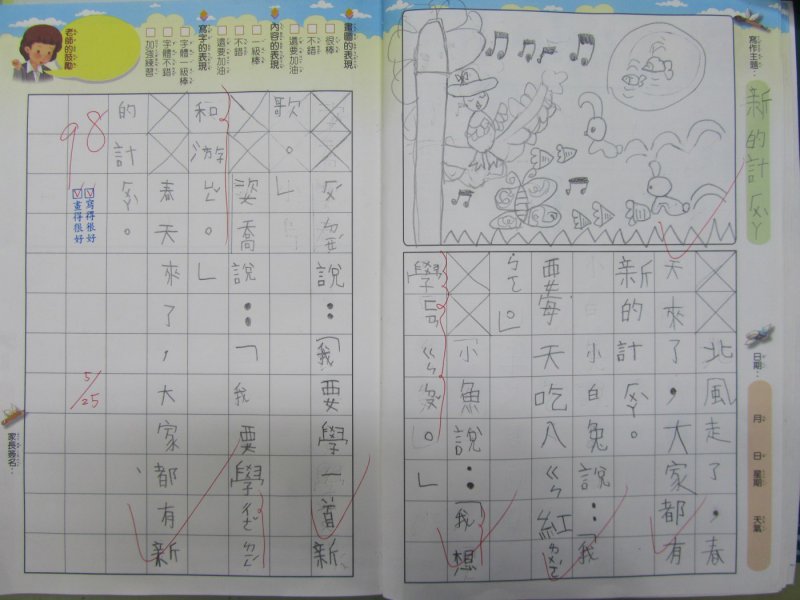 寫作主題：
新的計ㄏㄨㄚˋ
日期：
月
日
星期
天氣
北風走了，春
天來了，大家都有
新的計ㄏㄨㄚˋ。
小白兔說：「我
要每天吃八ㄍㄣ紅
ㄅㄛ˙。」
小魚說：「我想
學
說：「我要學一首新
歌。」
姿喬說：「我要學
和游
。」
春天來了，大家都有新
的計ㄏㄨㄚˋ。
98
寫得很好
畫得很好
5/25
繪圖的表現
很棒
不錯
還要加油
內容的表現
一級棒
不錯
還要加油
寫字的表現
字體一級棒
字體不錯
加強練習
老師的鼓勵
家長簽名：